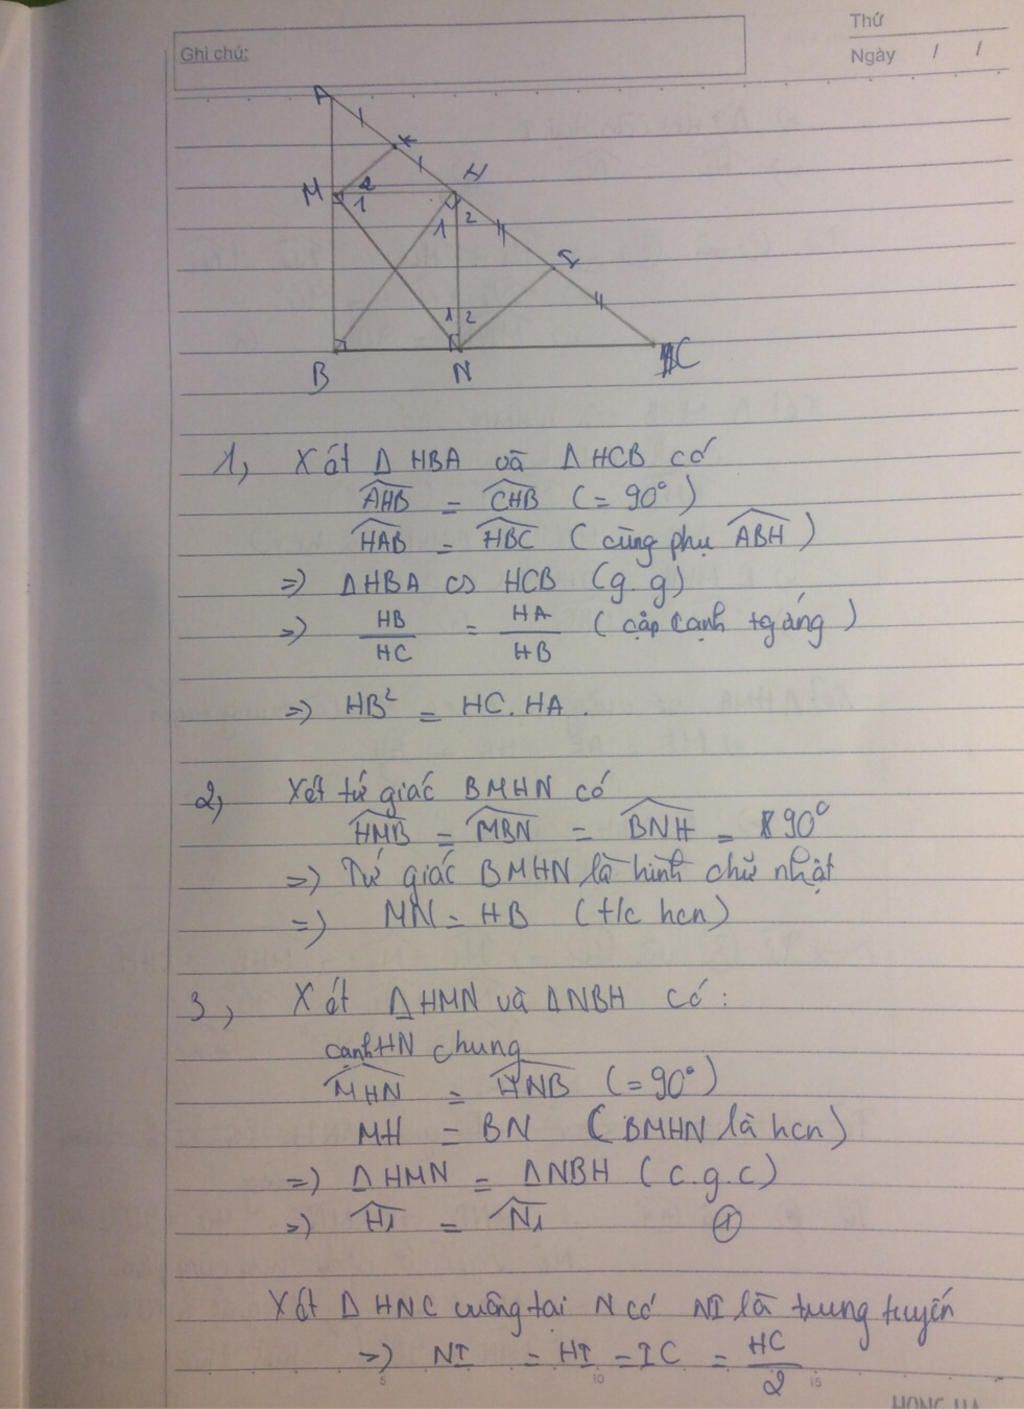 Thứ
Ghi chú:
Ngày / /
A
K
M 2 H
1
1 2
I
1 2
B N C
1, Xét Δ HBA và Δ HCB có
AHB = CHB (= 90°)
HAB = HBC (cùng phụ ABH)
=> Δ HBA ∽ HCB (g.g)
=> HB/HC = HA/HB (cặp cạnh tg ứng)
=> HB² = HC.HA.
2, Xét tứ giác BMHN có
HMB = MBN = BNH = 90°
=> Tứ giác BMHN là hình chữ nhật
=> MN = HB (t/c hcn)
3, Xét Δ HMN và Δ NBH có:
cạnh HN chung
MHN = HNB (= 90°)
MH = BN (BMHN là hcn)
=> Δ HMN = Δ NBH (c.g.c)
=> H1 = N1 (1)
Xét Δ HNC vuông tại N có NI là trung tuyến
=> NI = HI = IC = HC/2
5 10 15